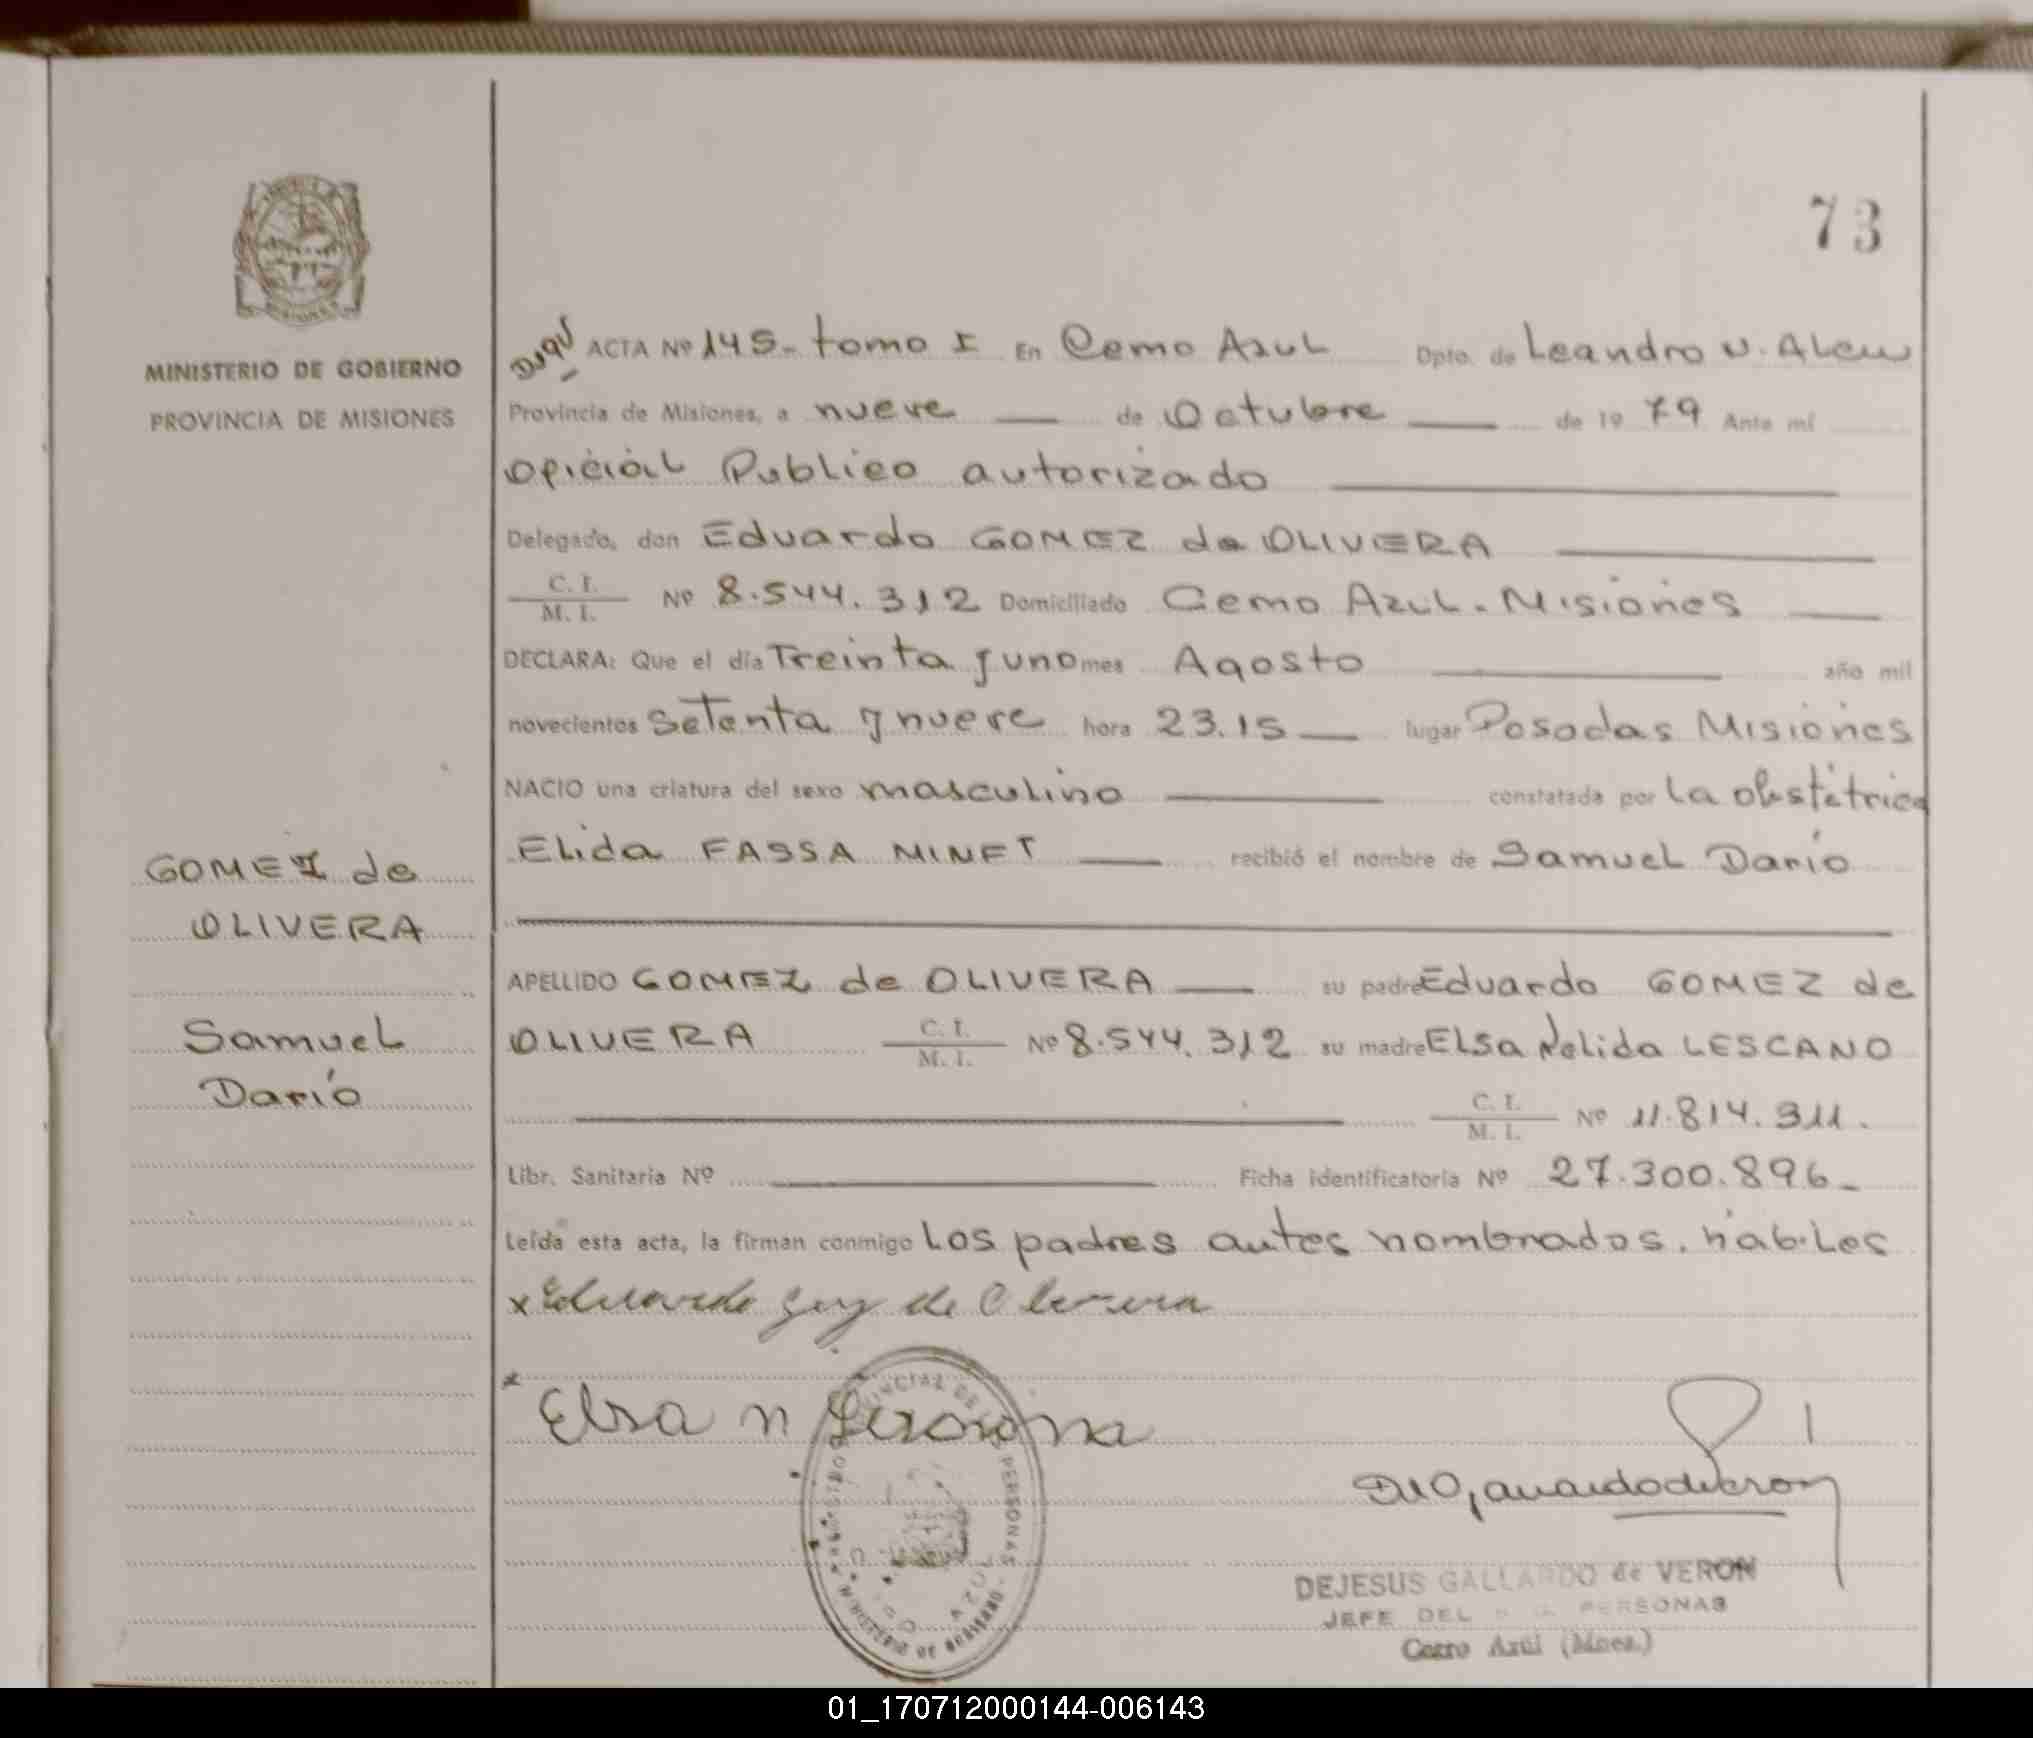 73
MINISTERIO DE GOBIERNO
PROVINCIA DE MISIONES
GOMEZ de
OLIVERA
Samuel
Darío
ACTA Nº 145- tomo I En Cerro Azul Dpto. de Leandro N. Alem
Provincia de Misiones, a nueve de Octubre de 19 79 Ante mí
Oficial Publico autorizado
Delegado, don Eduardo GOMEZ de OLIVERA
C. I. / M. I. Nº 8.544.312 Domiciliado Cerro Azul. Misiones
DECLARA: Que el día Treinta y uno mes Agosto año mil
novecientos setenta y nueve hora 23.15 lugar Posadas Misiones
NACIO una criatura del sexo masculino constatada por la obstétrica
Elida FASSA MINET recibió el nombre de Samuel Darío
APELLIDO GOMEZ de OLIVERA su padre Eduardo GOMEZ de
OLIVERA C. I. / M. I. Nº 8.544.312 su madre Elsa Nelida LESCANO
C. I. / M. I. Nº 11.814.311.
Libr. Sanitaria Nº Ficha identificatoria Nº 27.300.896-
Leída esta acta, la firman conmigo Los padres antes nombrados. hábiles
x Eduardo de Olivera
x Elsa n
DEJESUS GALLARDO de VERON
JEFE DEL PERSONAS
Cerro Azúl (Mnes.)
01_170712000144-006143